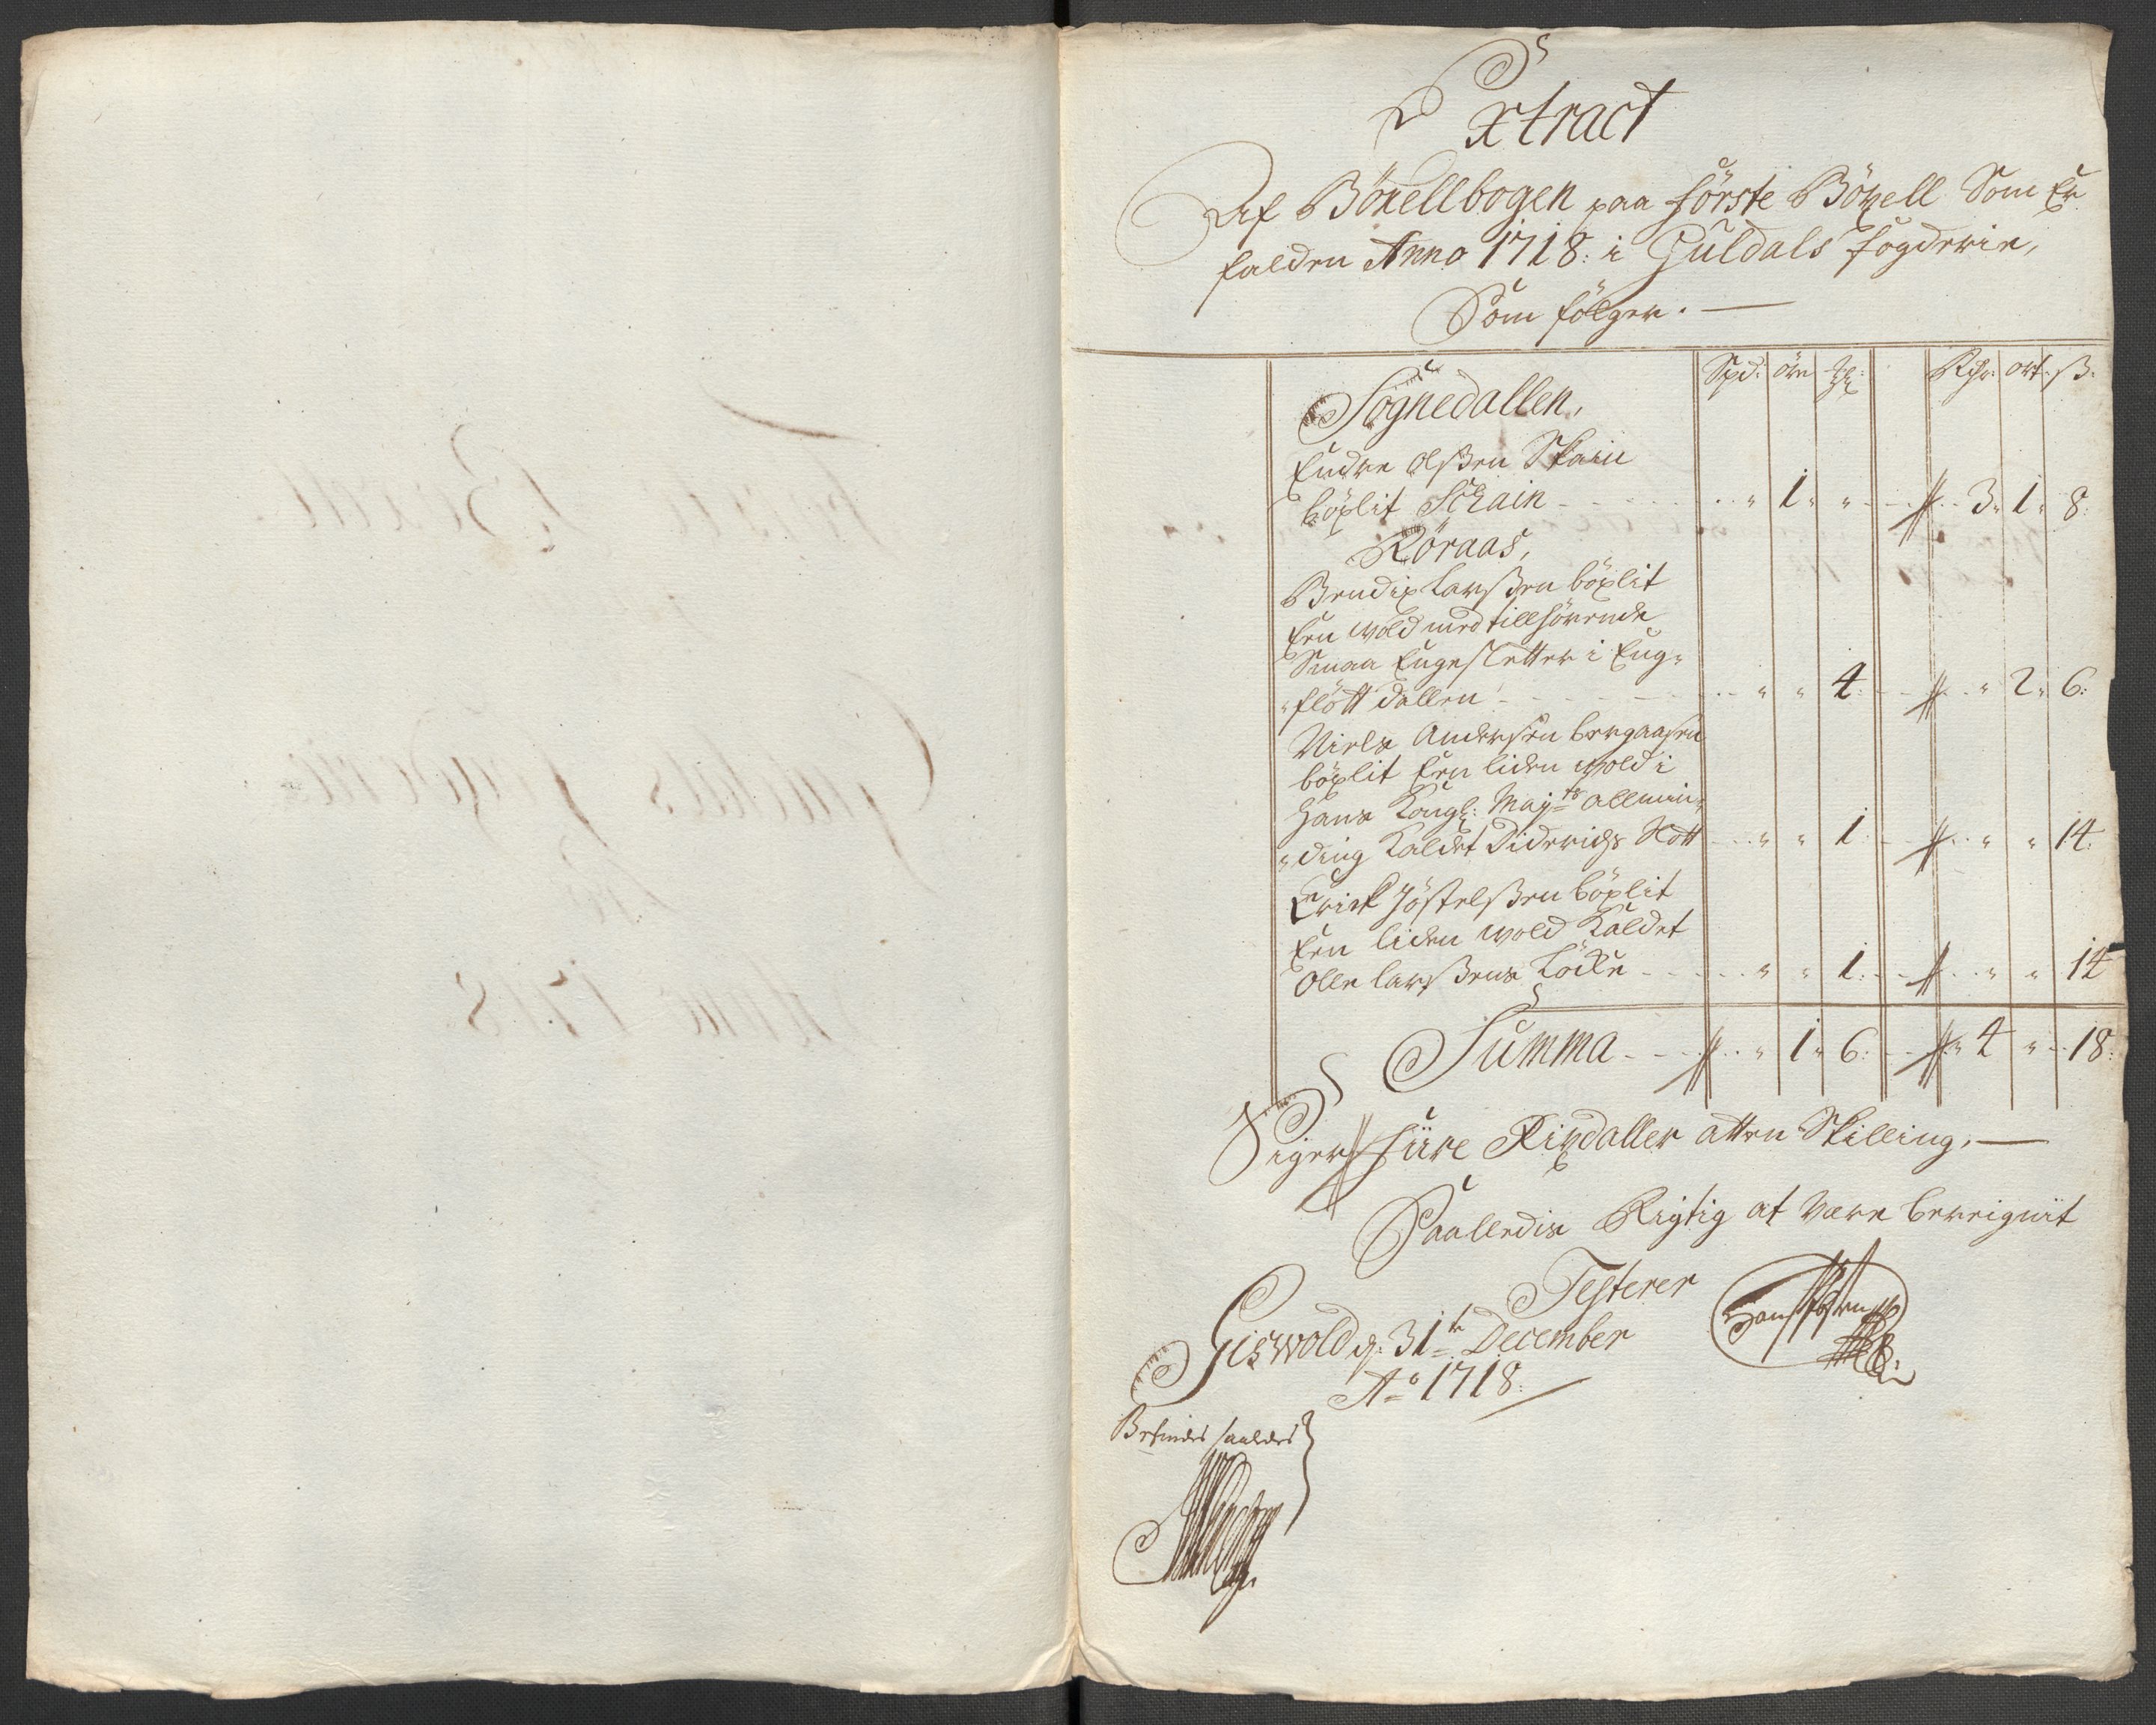 Extract
Af Böxellbogen paa förste Böxell Som Er
falden Anno 1718: i Guldals fogderie,
Som fölger. —
Spd: öre : Rdr: ort. ß:
Sognedallen,
Endre Olßen Skain
böxlit Schain - - - " 1 " " - 3 " 1 " 8:
Röraas,
Bendix Larßen böxlit
Een wold med tillhörende
Smaa Engesletter i Eng=
=flött dallen - - - " " 4: - " 2 " 6:
Niels Andersen bergaasen
böxlit Een liden wold i
Hans Kongl: Maj:ts allmin=
=ding Kaldet Diderichs Slott - - - " " 1: - " " 14:
Erick Jöstelßen böxlit
Een liden wold Kaldet
Olle Larßens Löcke - - - " " 1: - " " 14
Summa - - - " 1 " 6: - " 4 " - 18:
Siger fiire Rixdaller atten Skilling, —
Saalledis Rigtig at være bereignit
Testerer
Giswold d: 31te December
Ao 1718:
Befindes saaledes